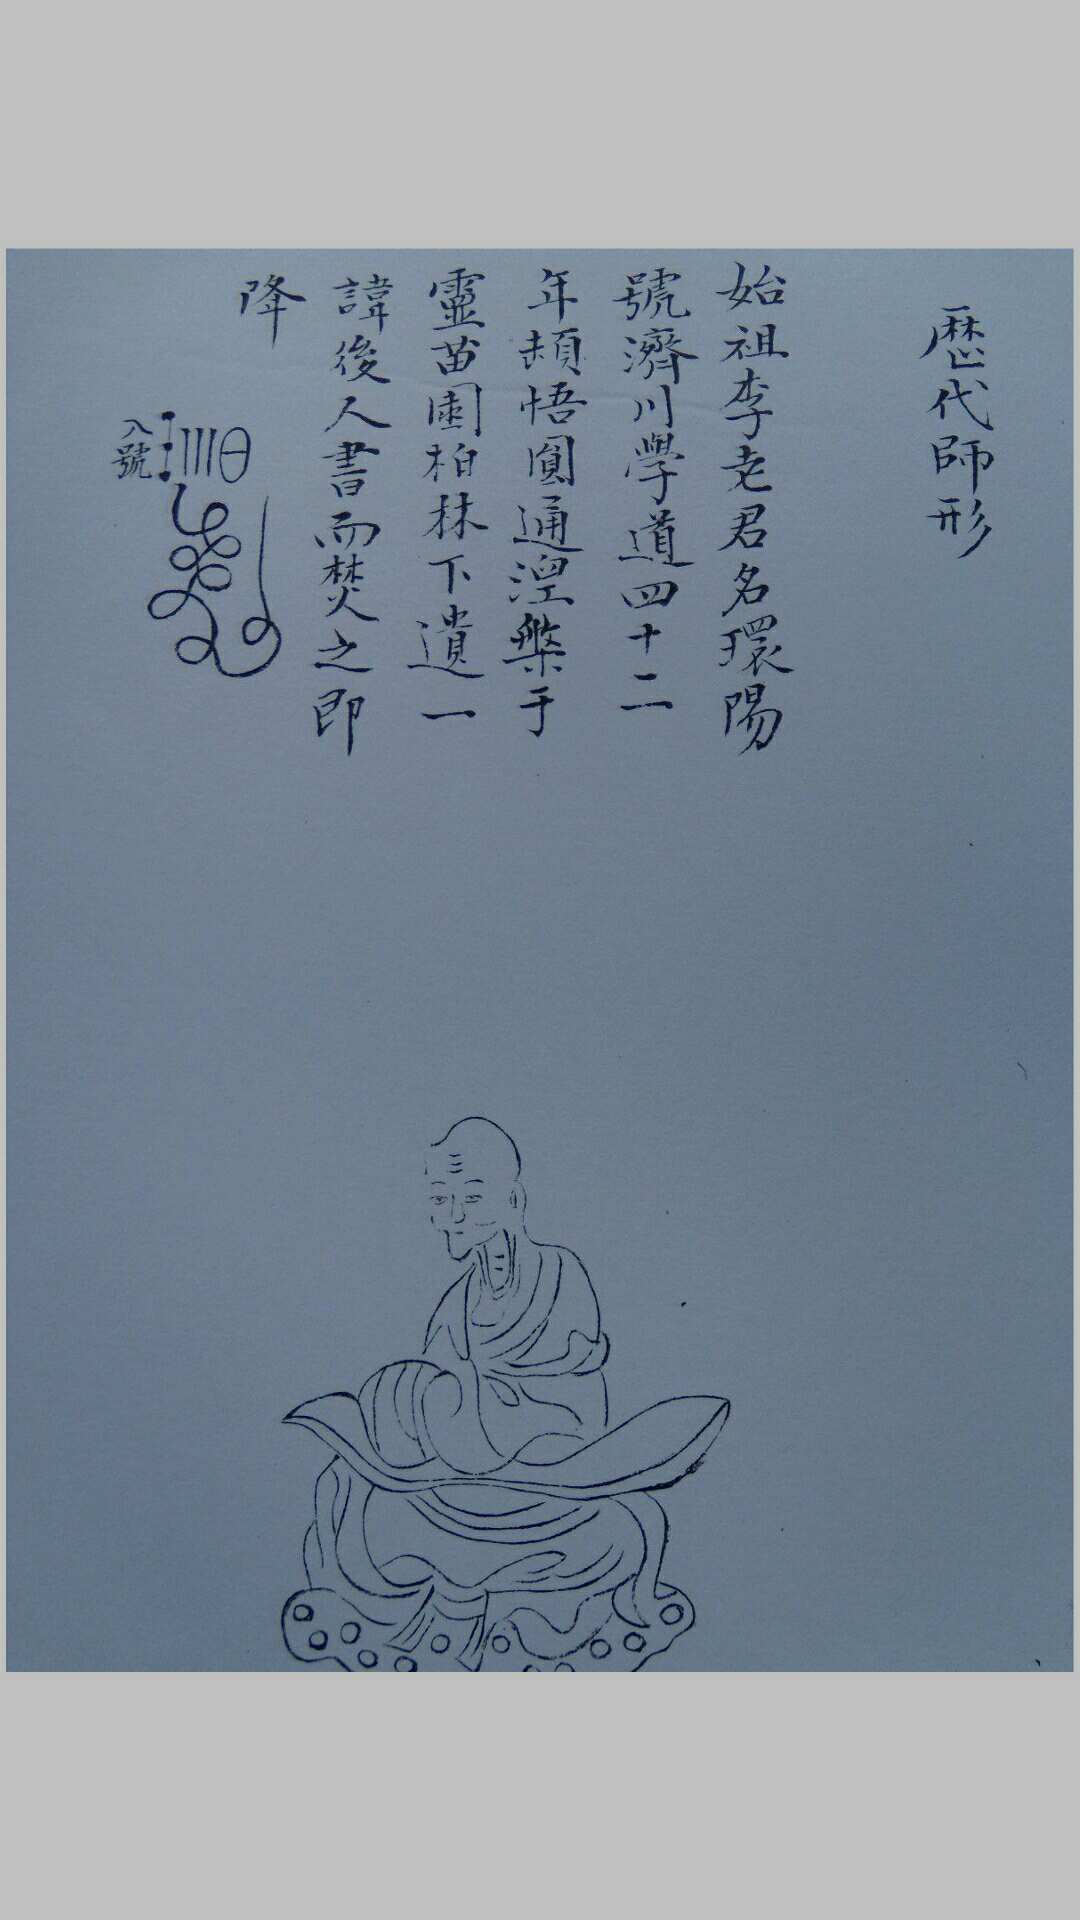 歴代師形
始祖李老君名環陽
號濟川學道四十二
年頓悟圓通涅槃于
靈苗園柏林下遺一
諱後人書而焚之即
降
入號